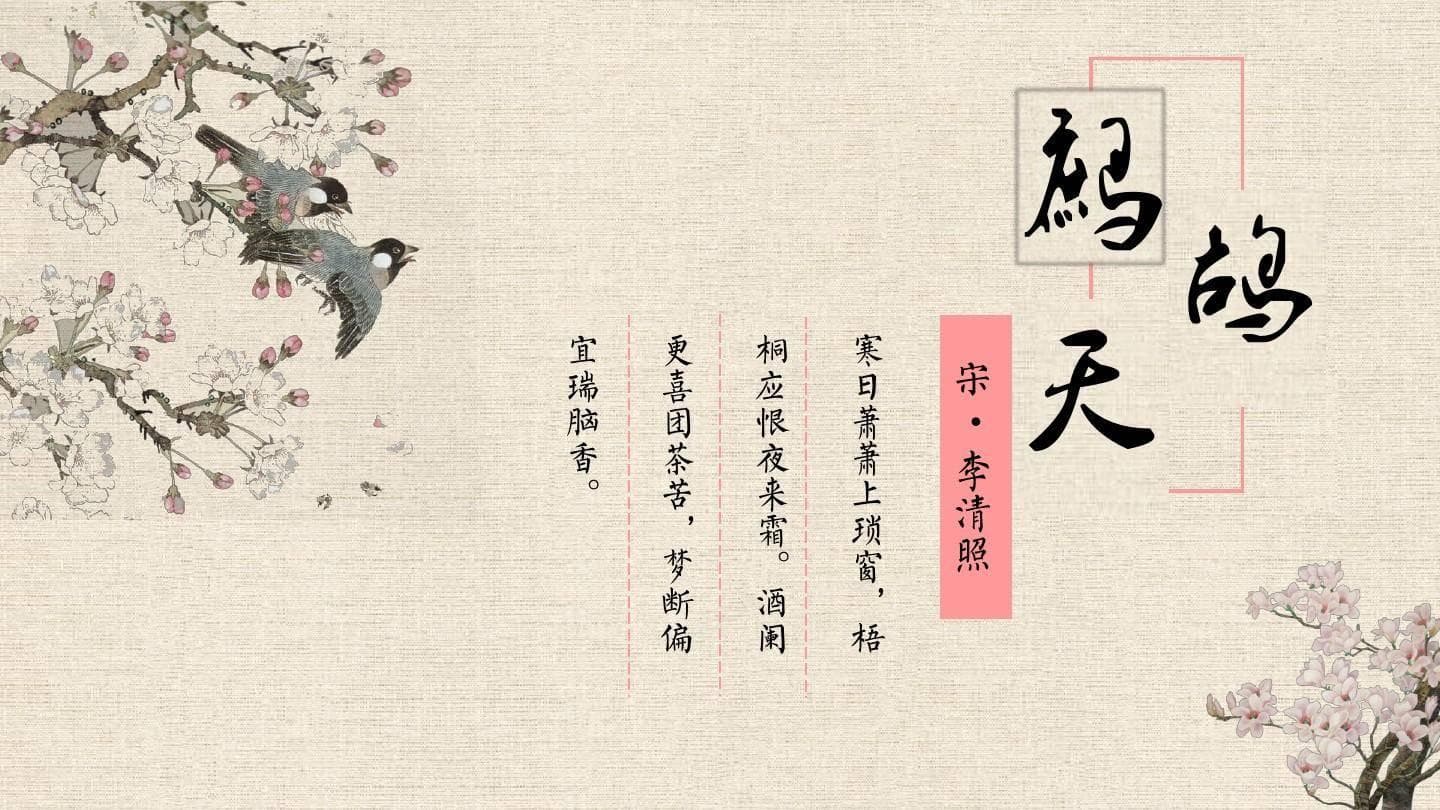 鹧鸪天
宋·李清照
寒日萧萧上琐窗，梧
桐应恨夜来霜。酒阑
更喜团茶苦，梦断偏
宜瑞脑香。